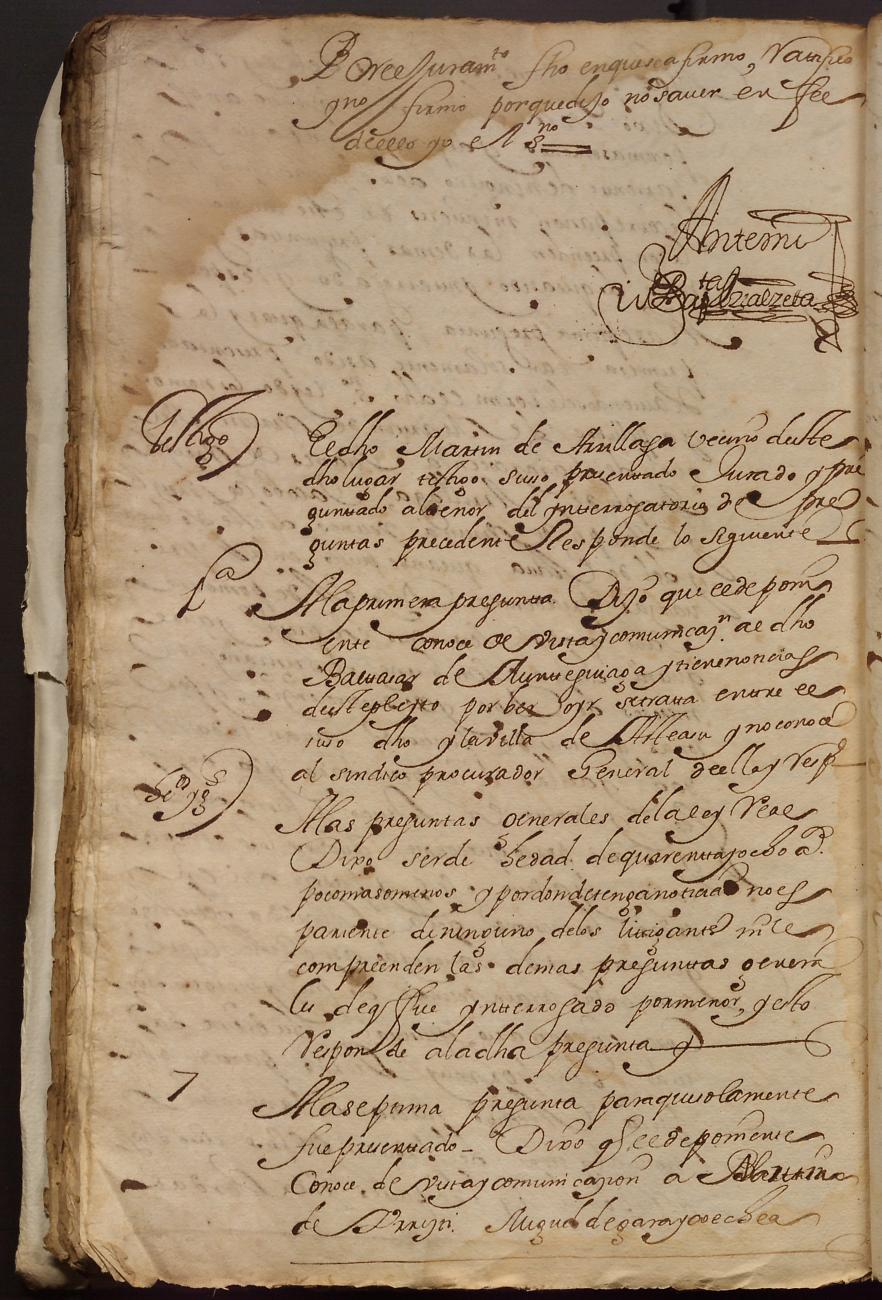 Por el Juramto fho en que se afirmo, Ratifico
y no firmo porque dijo no saver en fee
de ello yo el sno
Antemi
Bapta Zabalzeta
testigo
El dho Martin de Arillaga vecino deste
dho lugar testigo suso presentado Jurado y pre
guntado al tenor del ynterrogatorio de pre
guntas precedente Responde lo siguiente
1a
Alaprimera pregunta Dijo que el depon
ente conoce de vista y comunicazn al dho
Baltasar de y tiene noticia
deste pleyto por ber oyr se trata entre el
suso dho y la villa de Asteasu y no conoce
al sindico procurador General de ella y Respde
Alas preguntas generales dela ley Rere
Dixo ser de hedad de quarenta y ocho as
poco mas o menos y por donde tenga noticia no es
pariente de ninguno de los litigantes ni le
compreenden las demas preguntas genera
les de q fue ynterrogado por menor, y esto
Responde ala dha pregunta
7
Alaseptima pregunta para que solamente
fue presentado - Dixo q el deponente
Conoce de vista y comunicazion a Martin
de Miguel de garaycoechea